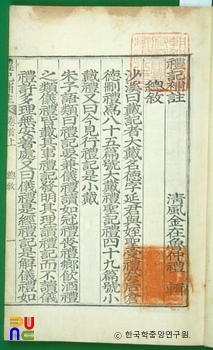 禮記補註
總敘
清風金在魯仲禮 輯
沙溪曰戴記者大戴名德字延君與姪聖受禮於后倉
德刪禮爲八十五篇號大戴禮聖記禮四十九篇號小
戴禮又曰今見行禮記是小戴
朱子語類曰禮記要兼儀禮讀如冠禮喪禮鄕飮酒禮
之類儀禮皆載其事禮記發明其理讀禮記而不讀儀
禮許多理無安著處又曰儀禮是經禮記是解儀禮如
總敘
©한국학중앙연구원.